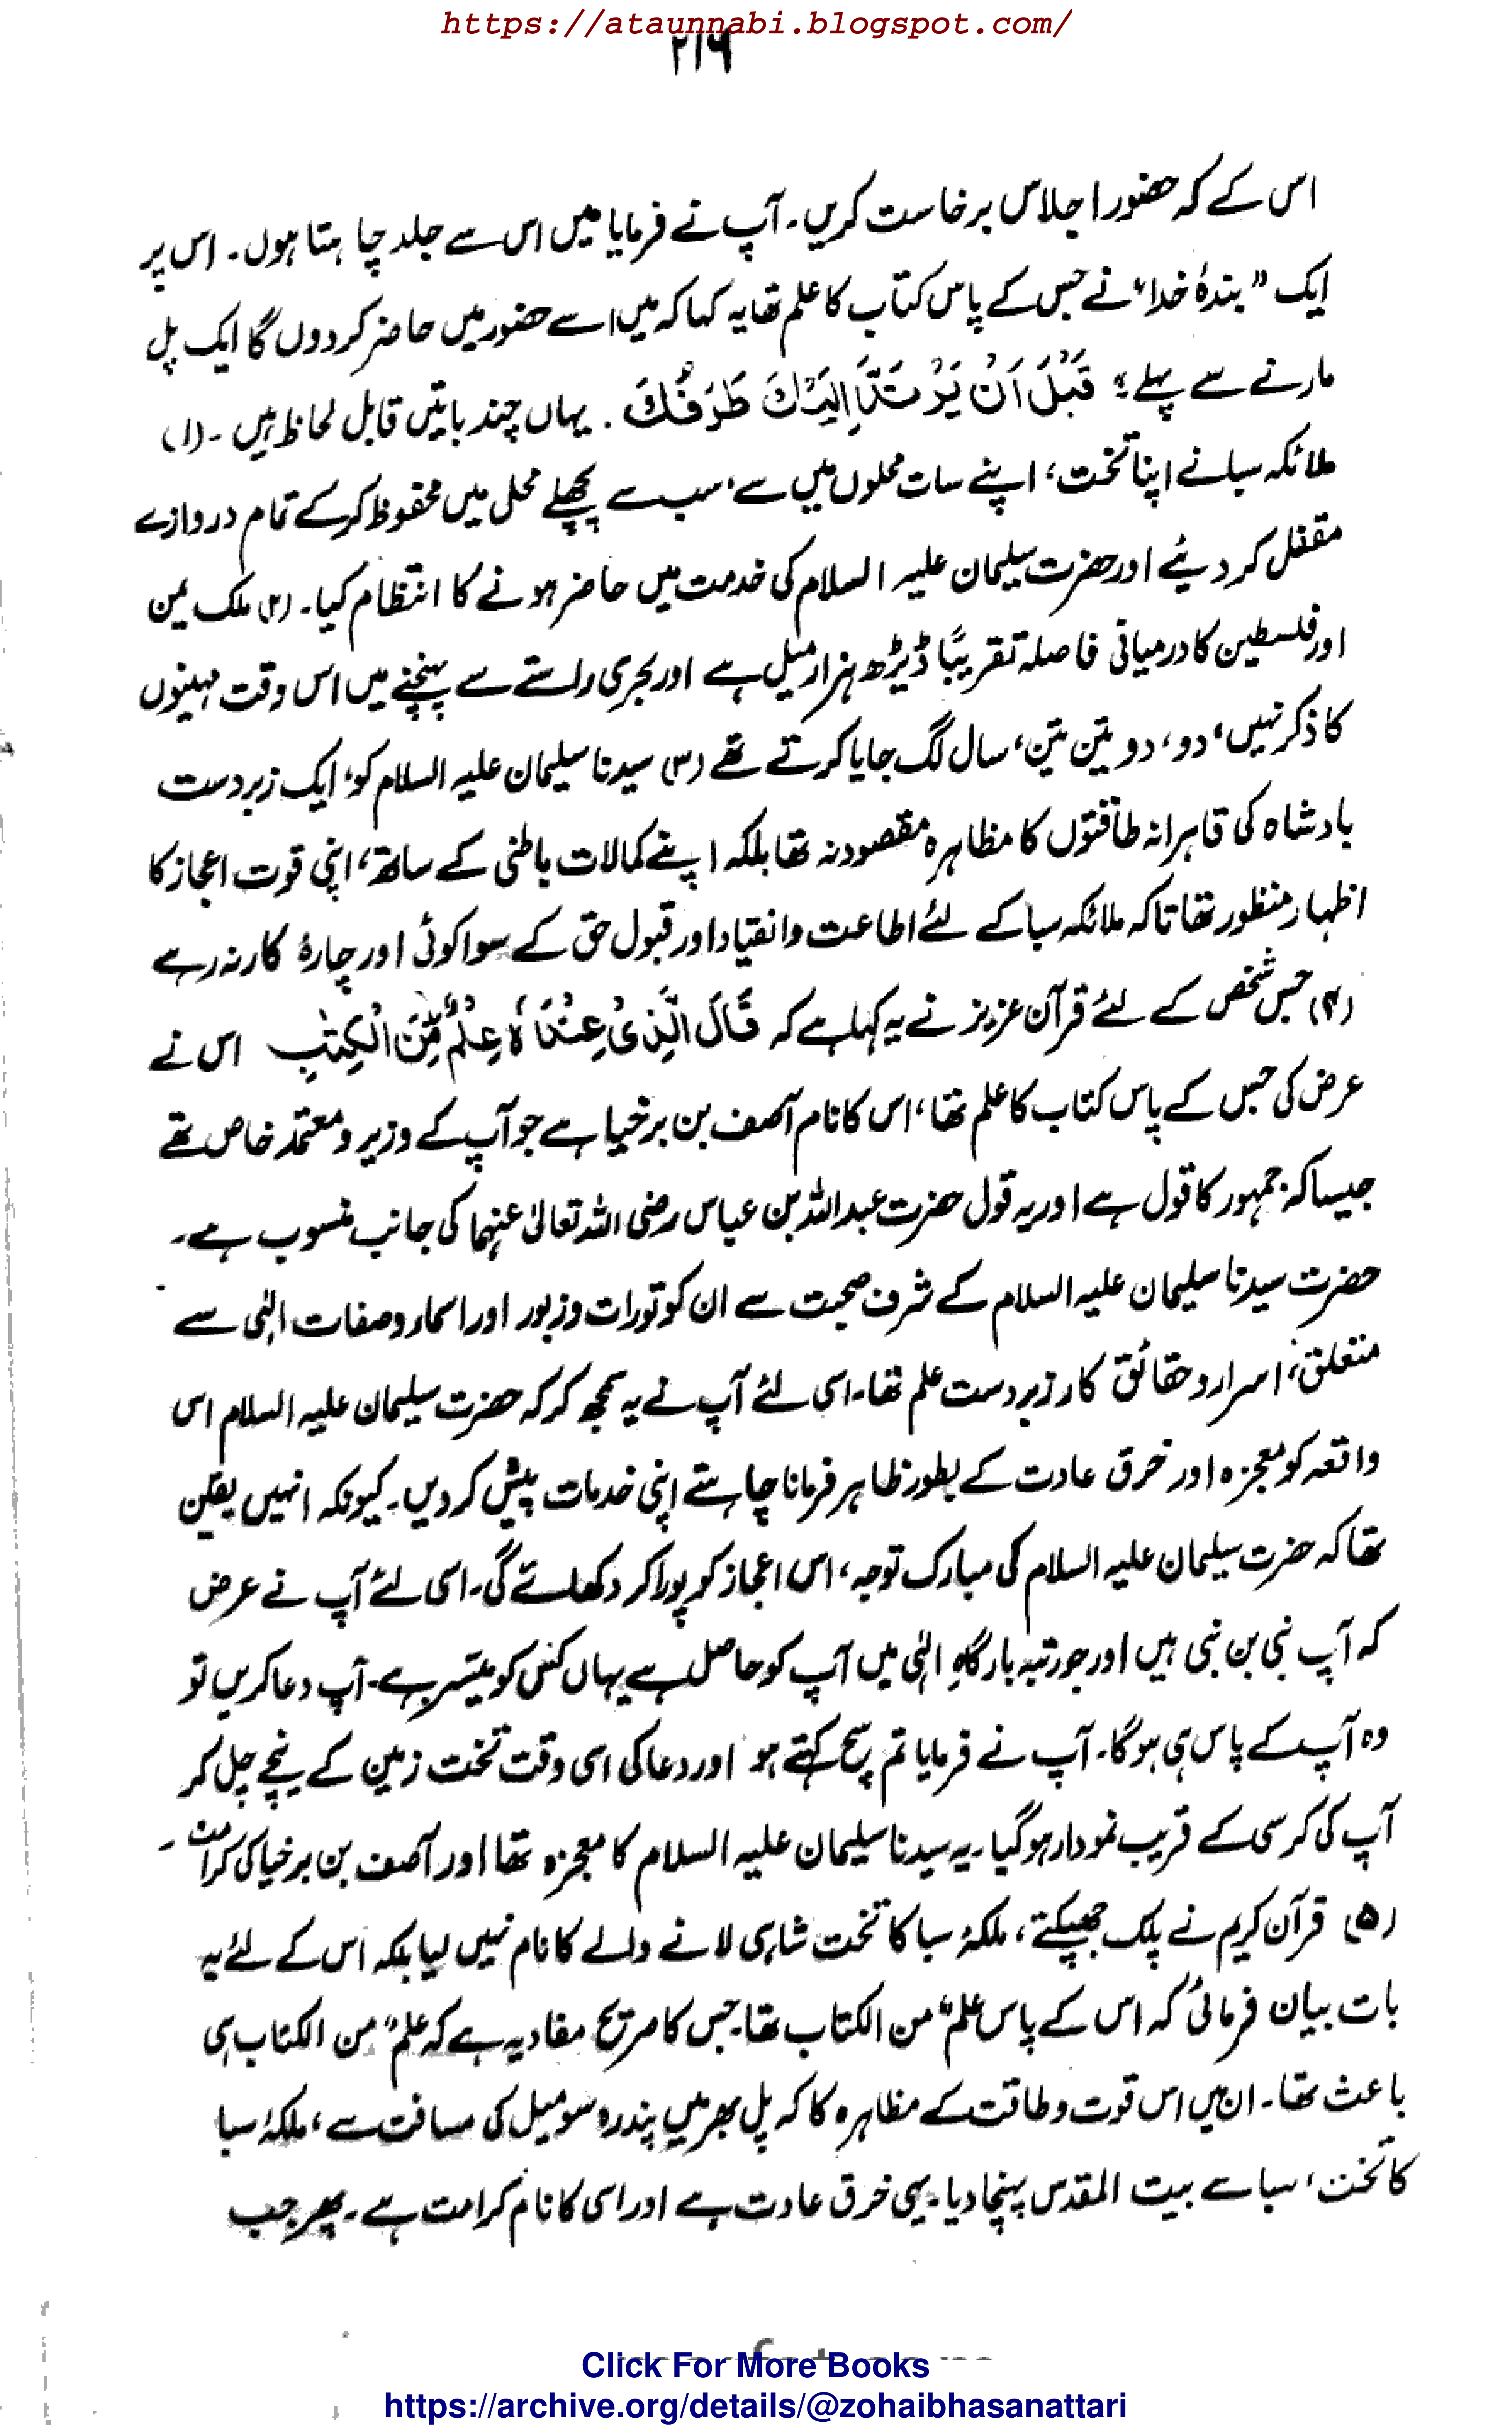 https://ataunnabi.blogspot.com/
۲۱۶
اس کے کہ حضور اجلاس برخاست کریں۔ آپ نے فرمایا میں اس سے جلد چاہتا ہوں۔ اس پر
ایک "بندۂ خدا" نے جس کے پاس کتاب کا علم تھا یہ کہا کہ میں اسے حضور میں حاضر کر دوں گا ایک پل
مارنے سے پہلے؛ قَبْلَ اَنْ يَرْتَدَّ اِلَيْكَ طَرْفُكَ. یہاں چند باتیں قابل لحاظ ہیں۔ (۱)
ملائکہ سبا نے اپنا تخت، اپنے سات محلوں میں سے، سب سے پچھلے محل میں محفوظ کر کے تمام دروازے
مقفل کر دیئے اور حضرت سلیمان علیہ السلام کی خدمت میں حاضر ہونے کا انتظام کیا۔ (۲) ملک یمن
اور فلسطین کا درمیانی فاصلہ تقریبًا ڈیڑھ ہزار میل ہے اور بحری راستے سے پہنچنے میں اس وقت مہینوں
کا ذکر نہیں، دو، دو تین تین، سال لگ جایا کرتے تھے (۳) سیدنا سلیمان علیہ السلام کو، ایک زبردست
بادشاہ کی قاہرانہ طاقتوں کا مظاہرہ مقصود نہ تھا بلکہ اپنے کمالات باطنی کے ساتھ، اپنی قوت اعجاز کا
اظہار منظور تھا تاکہ ملائکہ سبا کے لئے اطاعت و انقیاد اور قبول حق کے سوا کوئی اور چارۂ کار نہ رہے
(۴) جس شخص کے لئے قرآن عزیز نے یہ کہا ہے کہ قَالَ الَّذِىْ عِنْدَهٗ عِلْمٌ مِّنَ الْكِتٰبِ اس نے
عرض کی جس کے پاس کتاب کا علم تھا، اس کا نام آصف بن برخیا ہے جو آپ کے وزیر و معتمد خاص تھے
جیسا کہ جمہور کا قول ہے اور یہ قول حضرت عبداللہ بن عباس رضی اللہ تعالیٰ عنہما کی جانب منسوب ہے۔
حضرت سیدنا سلیمان علیہ السلام کے شرف صحبت سے ان کو تورات و زبور اور اسماء و صفات الٰہی سے
متعلق، اسرار و حقائق کا زبردست علم تھا۔ اسی لئے آپ نے یہ سمجھ کر کہ حضرت سلیمان علیہ السلام اس
واقعہ کو معجزہ اور خرق عادت کے بطور ظاہر فرمانا چاہتے اپنی خدمات پیش کر دیں۔ کیونکہ انہیں یقین
تھا کہ حضرت سلیمان علیہ السلام کی مبارک توجہ، اس اعجاز کو پورا کر دکھلائے گی۔ اسی لئے آپ نے عرض
کہ آپ نبی بن نبی ہیں اور جو رتبہ بارگاہِ الٰہی میں آپ کو حاصل ہے یہاں کس کو میسّر ہے۔ آپ دعا کریں تو
وہ آپ کے پاس ہی ہوگا۔ آپ نے فرمایا تم سچ کہتے ہو اور دعا کی اسی وقت تخت زمین کے نیچے چل کر
آپ کی کرسی کے قریب نمودار ہو گیا۔ یہ سیدنا سلیمان علیہ السلام کا معجزہ تھا اور آصف بن برخیا کی کرامت۔
(۵) قرآن کریم نے پلک جھپکتے، ملکۂ سبا کا تخت شاہی لانے والے کا نام نہیں لیا بلکہ اس کے لئے یہ
بات بیان فرمائی کہ اس کے پاس علم" من الکتاب تھا۔ جس کا صریح مفاد یہ ہے کہ علم" من الکتاب ہی
باعث تھا۔ ان میں اس قوت و طاقت کے مظاہرہ کا کہ پل بھر میں پندرہ سو میل کی مسافت سے، ملکۂ سبا
کا تخت، سبا سے بیت المقدس پہنچا دیا۔ یہی خرق عادت ہے اور اسی کا نام کرامت ہے۔ پھر جب
Click For More Books
https://archive.org/details/@zohaibhasanattari